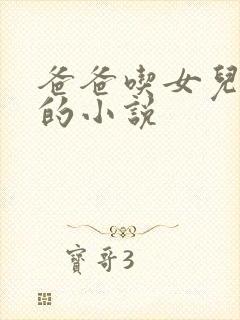 爸爸喫女兒
的小說
寶哥3